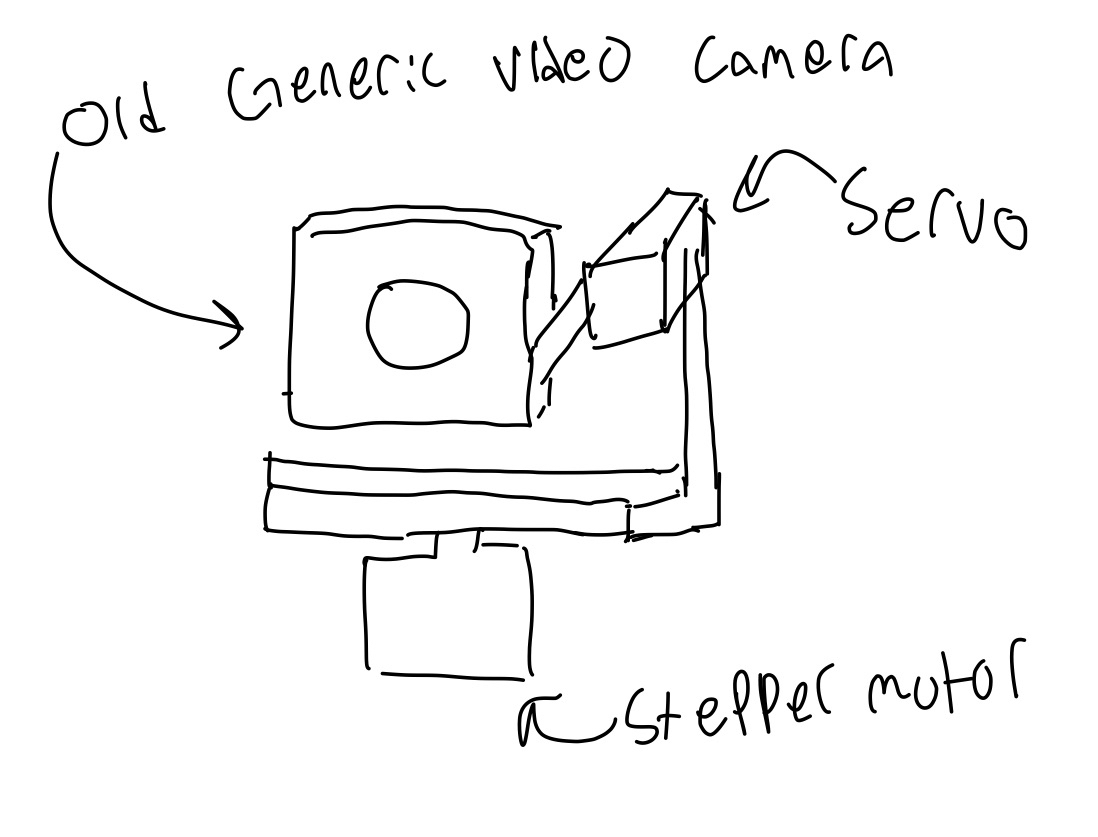 Old Generic video camera
Servo
Stepper motor